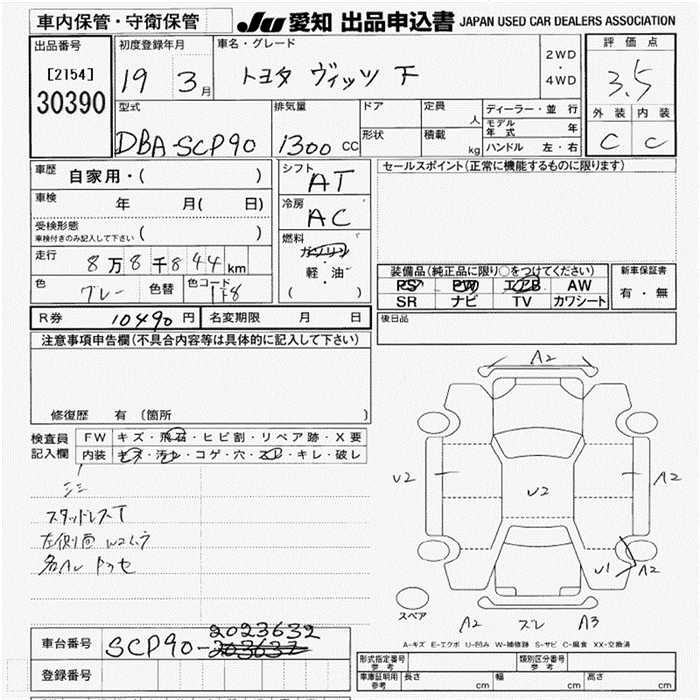 車内保管・守衛保管 JU 愛知 出品申込書 JAPAN USED CAR DEALERS ASSOCIATION
出品番号 初度登録年月 車名・グレード 2WD ・ 4WD 評価点
[2154] 19 3月 トヨタ ヴィッツ F 3.5
30390 型式 排気量 ドア 定員 人 ディーラー・並行 外装 内装
DBA-SCP90 1300 CC 形状 積載 kg モデル年式 年 C C
ハンドル 左・右
車歴 自家用・( ) シフト AT セールスポイント(正常に機能するものに限ります)
車検 年 月( 日) 冷房 AC
受検形態 ( )
車検付きのみ記入して下さい
燃料 ガソリン
走行 8万8千844km ・軽・油 装備品(純正品に限り○をつけてください) 新車保証書
色 グレー 色替 色コード 1F8 ( ) PS PW エアB AW 有・無
SR ナビ TV カワシート
R券 10490円 名変期限 月 日 後日品
注意事項申告欄(不具合内容等は具体的に記入して下さい)
修復歴 有 (箇所 )
検査員 FW キズ・飛石・ヒビ割・リペア跡・X要
記入欄 内装 キズ・汚れ・コゲ・穴・スレ・キレ・破レ
スタッドレスT
左側面
A2
U2 U2 A2
U1 A2
スペア A2 スレ A3
車台番号 SCP90-2023632 203632
A-キズ E-エクボ U-凹み W-補修跡 S-サビ C-腐食 XX-交換済
登録番号 形式指定番号 参考 類別区分番号 参考
車庫証明用 参考 長さ cm 幅 cm 高さ cm